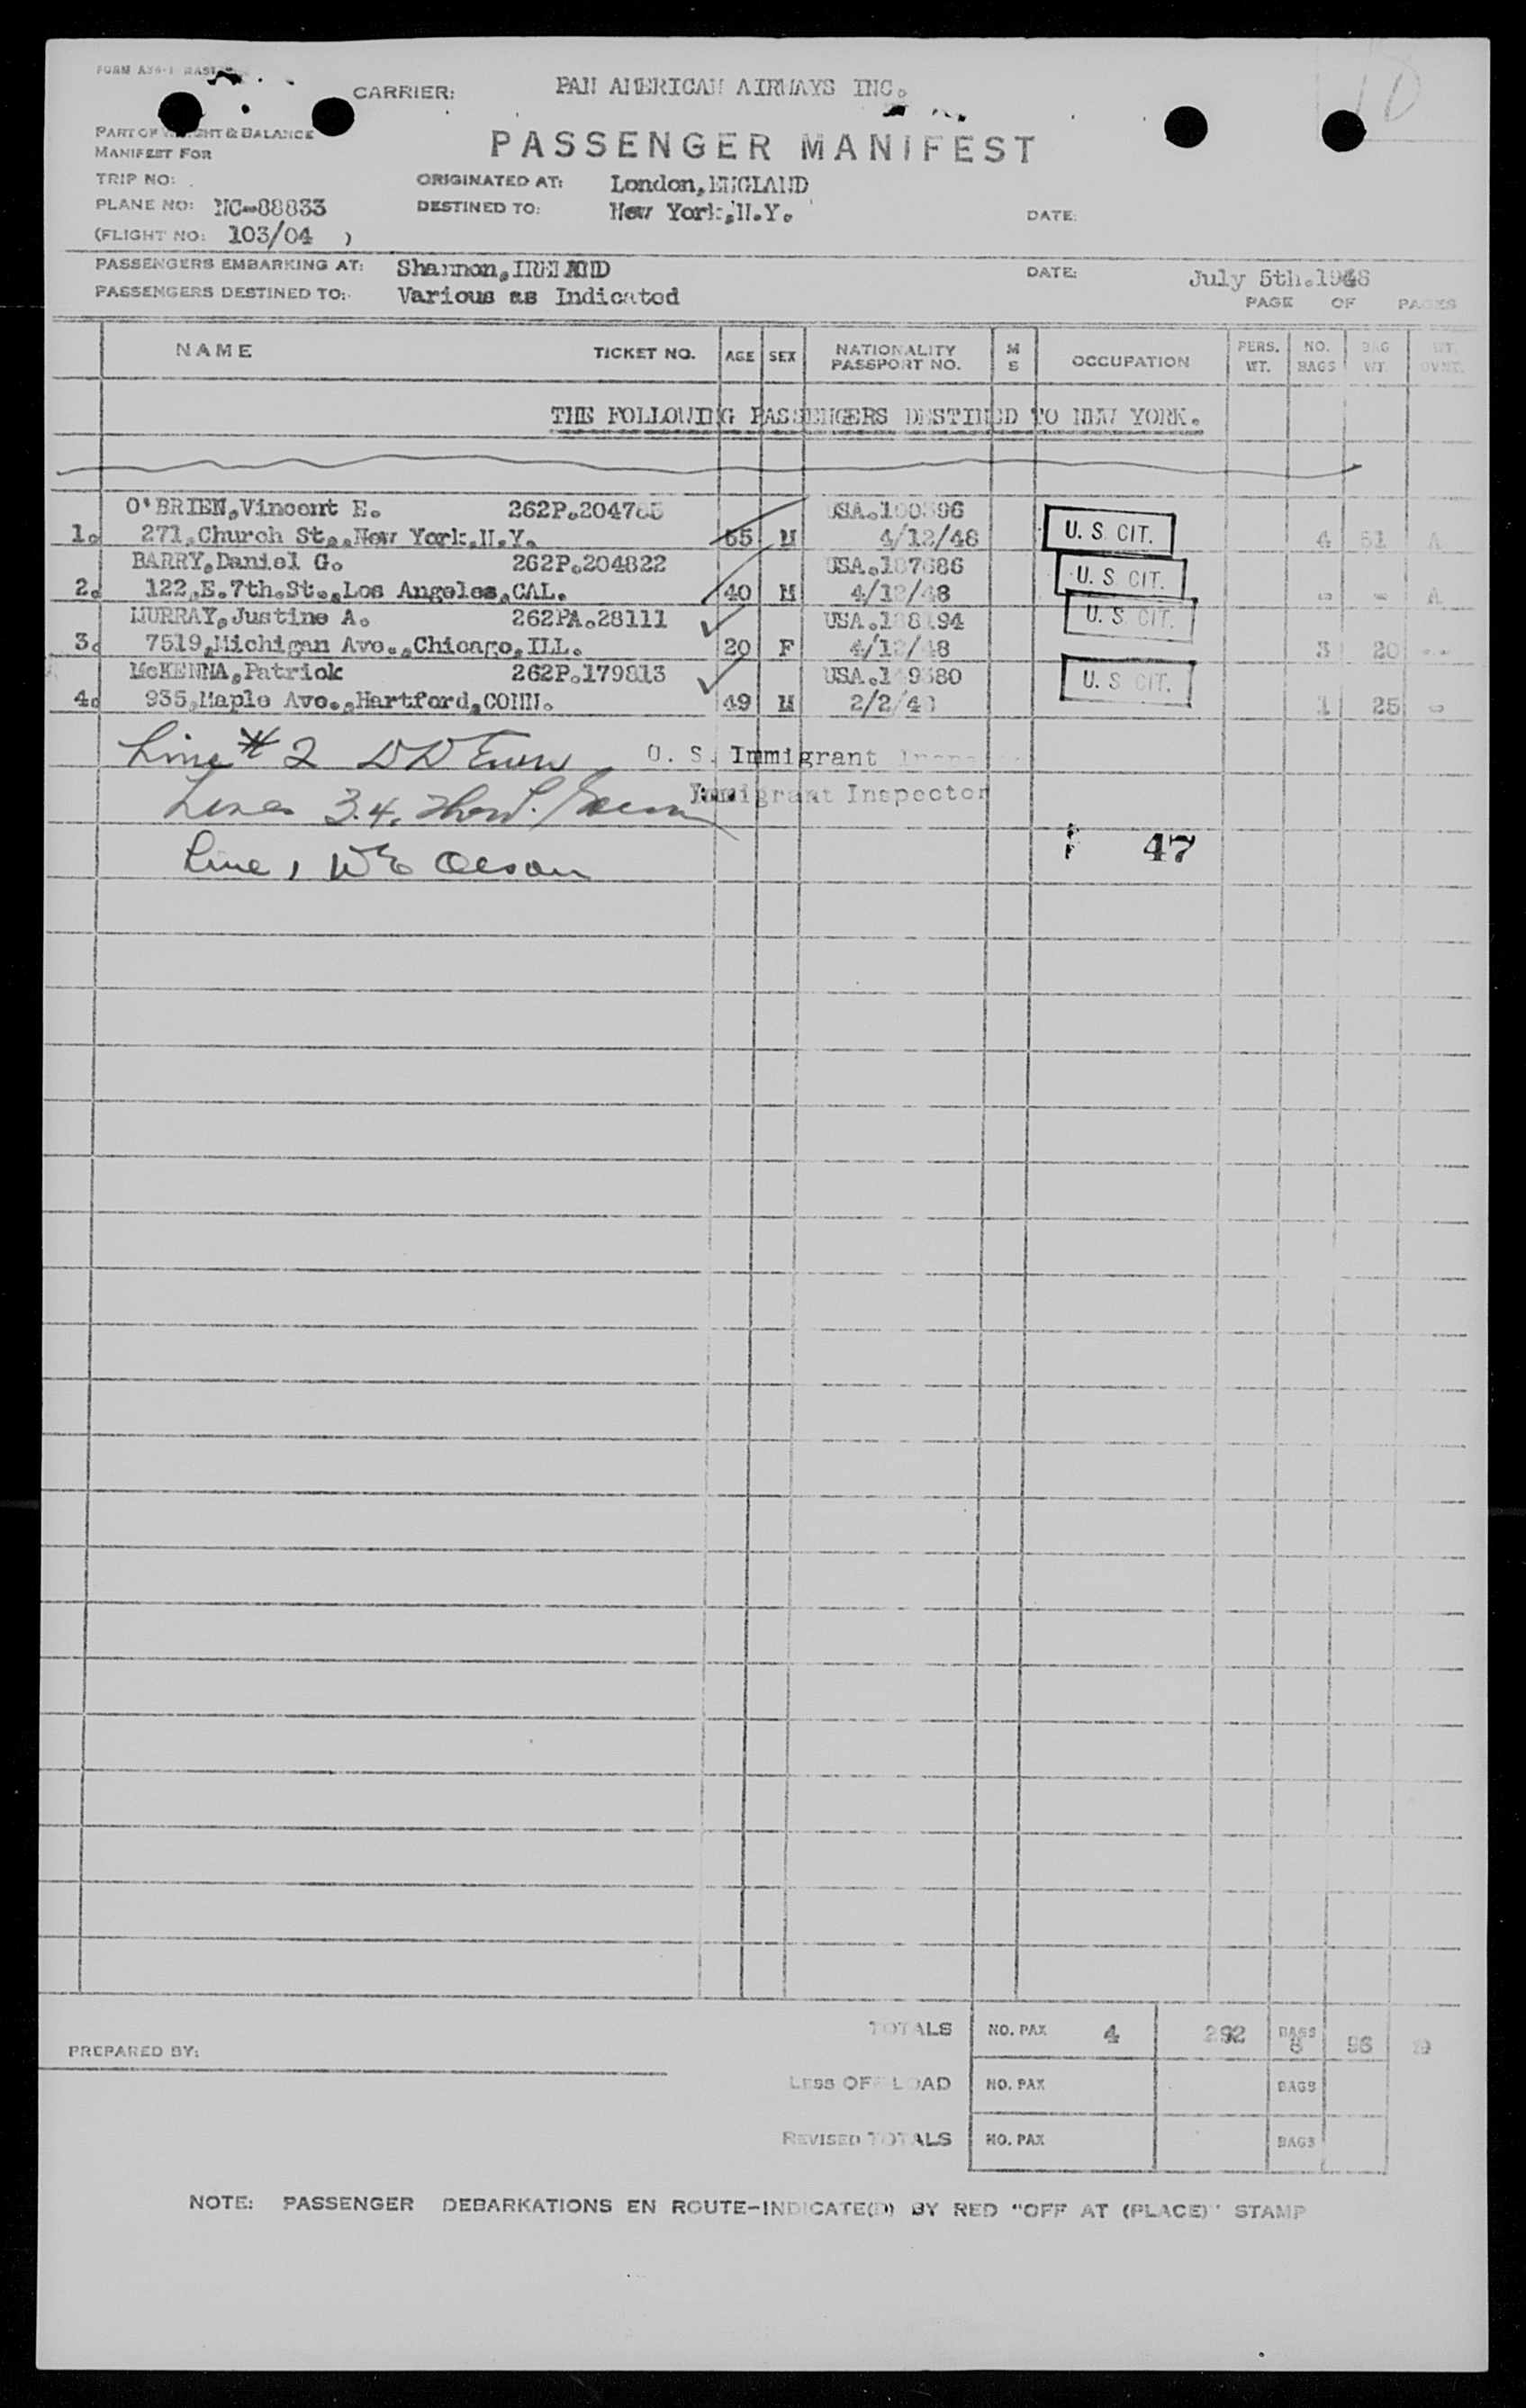 CARRIER: PAN AMERICAN AIRWAYS INC.
PART OF WEIGHT & BALANCE
MANIFEST FOR
PASSENGER MANIFEST
TRIP NO:
ORIGINATED AT: London,ENGLAND
PLANE NO: NC-88833
DESTINED TO: New York,N.Y.
DATE:
(FLIGHT NO: 103/04 )
PASSENGERS EMBARKING AT: Shannon,IRELAND
DATE: July 5th.1948
PASSENGERS DESTINED TO: Various as Indicated
PAGE OF PAGES
NAME TICKET NO. AGE SEX NATIONALITY PASSPORT NO. M S OCCUPATION PERS. WT. NO. BAGS BAG WT.
THE FOLLOWING PASSENGERS DESTINED TO NEW YORK.
O'BRIEN,Vincent E. 262P.2047
1. 271,Church St.,New York,N.Y. 55 M 4/12/48 U. S. CIT. 4 51 A
BARRY,Daniel G. 262P.204822
2. 122,E.7th.St.,Los Angeles,CAL. 40 M 4/12/48 U. S. CIT. - - A
MURRAY,Justine A. 262PA.28111
3. 7519,Michigan Ave.,Chicago,ILL. 20 F 4/12/48 U. S. CIT. 3 20 --
McKENNA,Patrick 262P.179813
4. 935,Maple Ave.,Hartford,CONN. 49 M 2/2/4 U. S. CIT. 1 25 -
Line # 2
U. S. Immigrant
Lines 3.4.
Immigrant Inspector
47
Line 1 WE Olson
TOTALS NO. PAX 4 292 BAGS 8 96
PREPARED BY:
LESS OFF LOAD NO. PAX BAGS
REVISED TOTALS NO. PAX BAGS
NOTE: PASSENGER DEBARKATIONS EN ROUTE-INDICATE(D) BY RED "OFF AT (PLACE)" STAMP